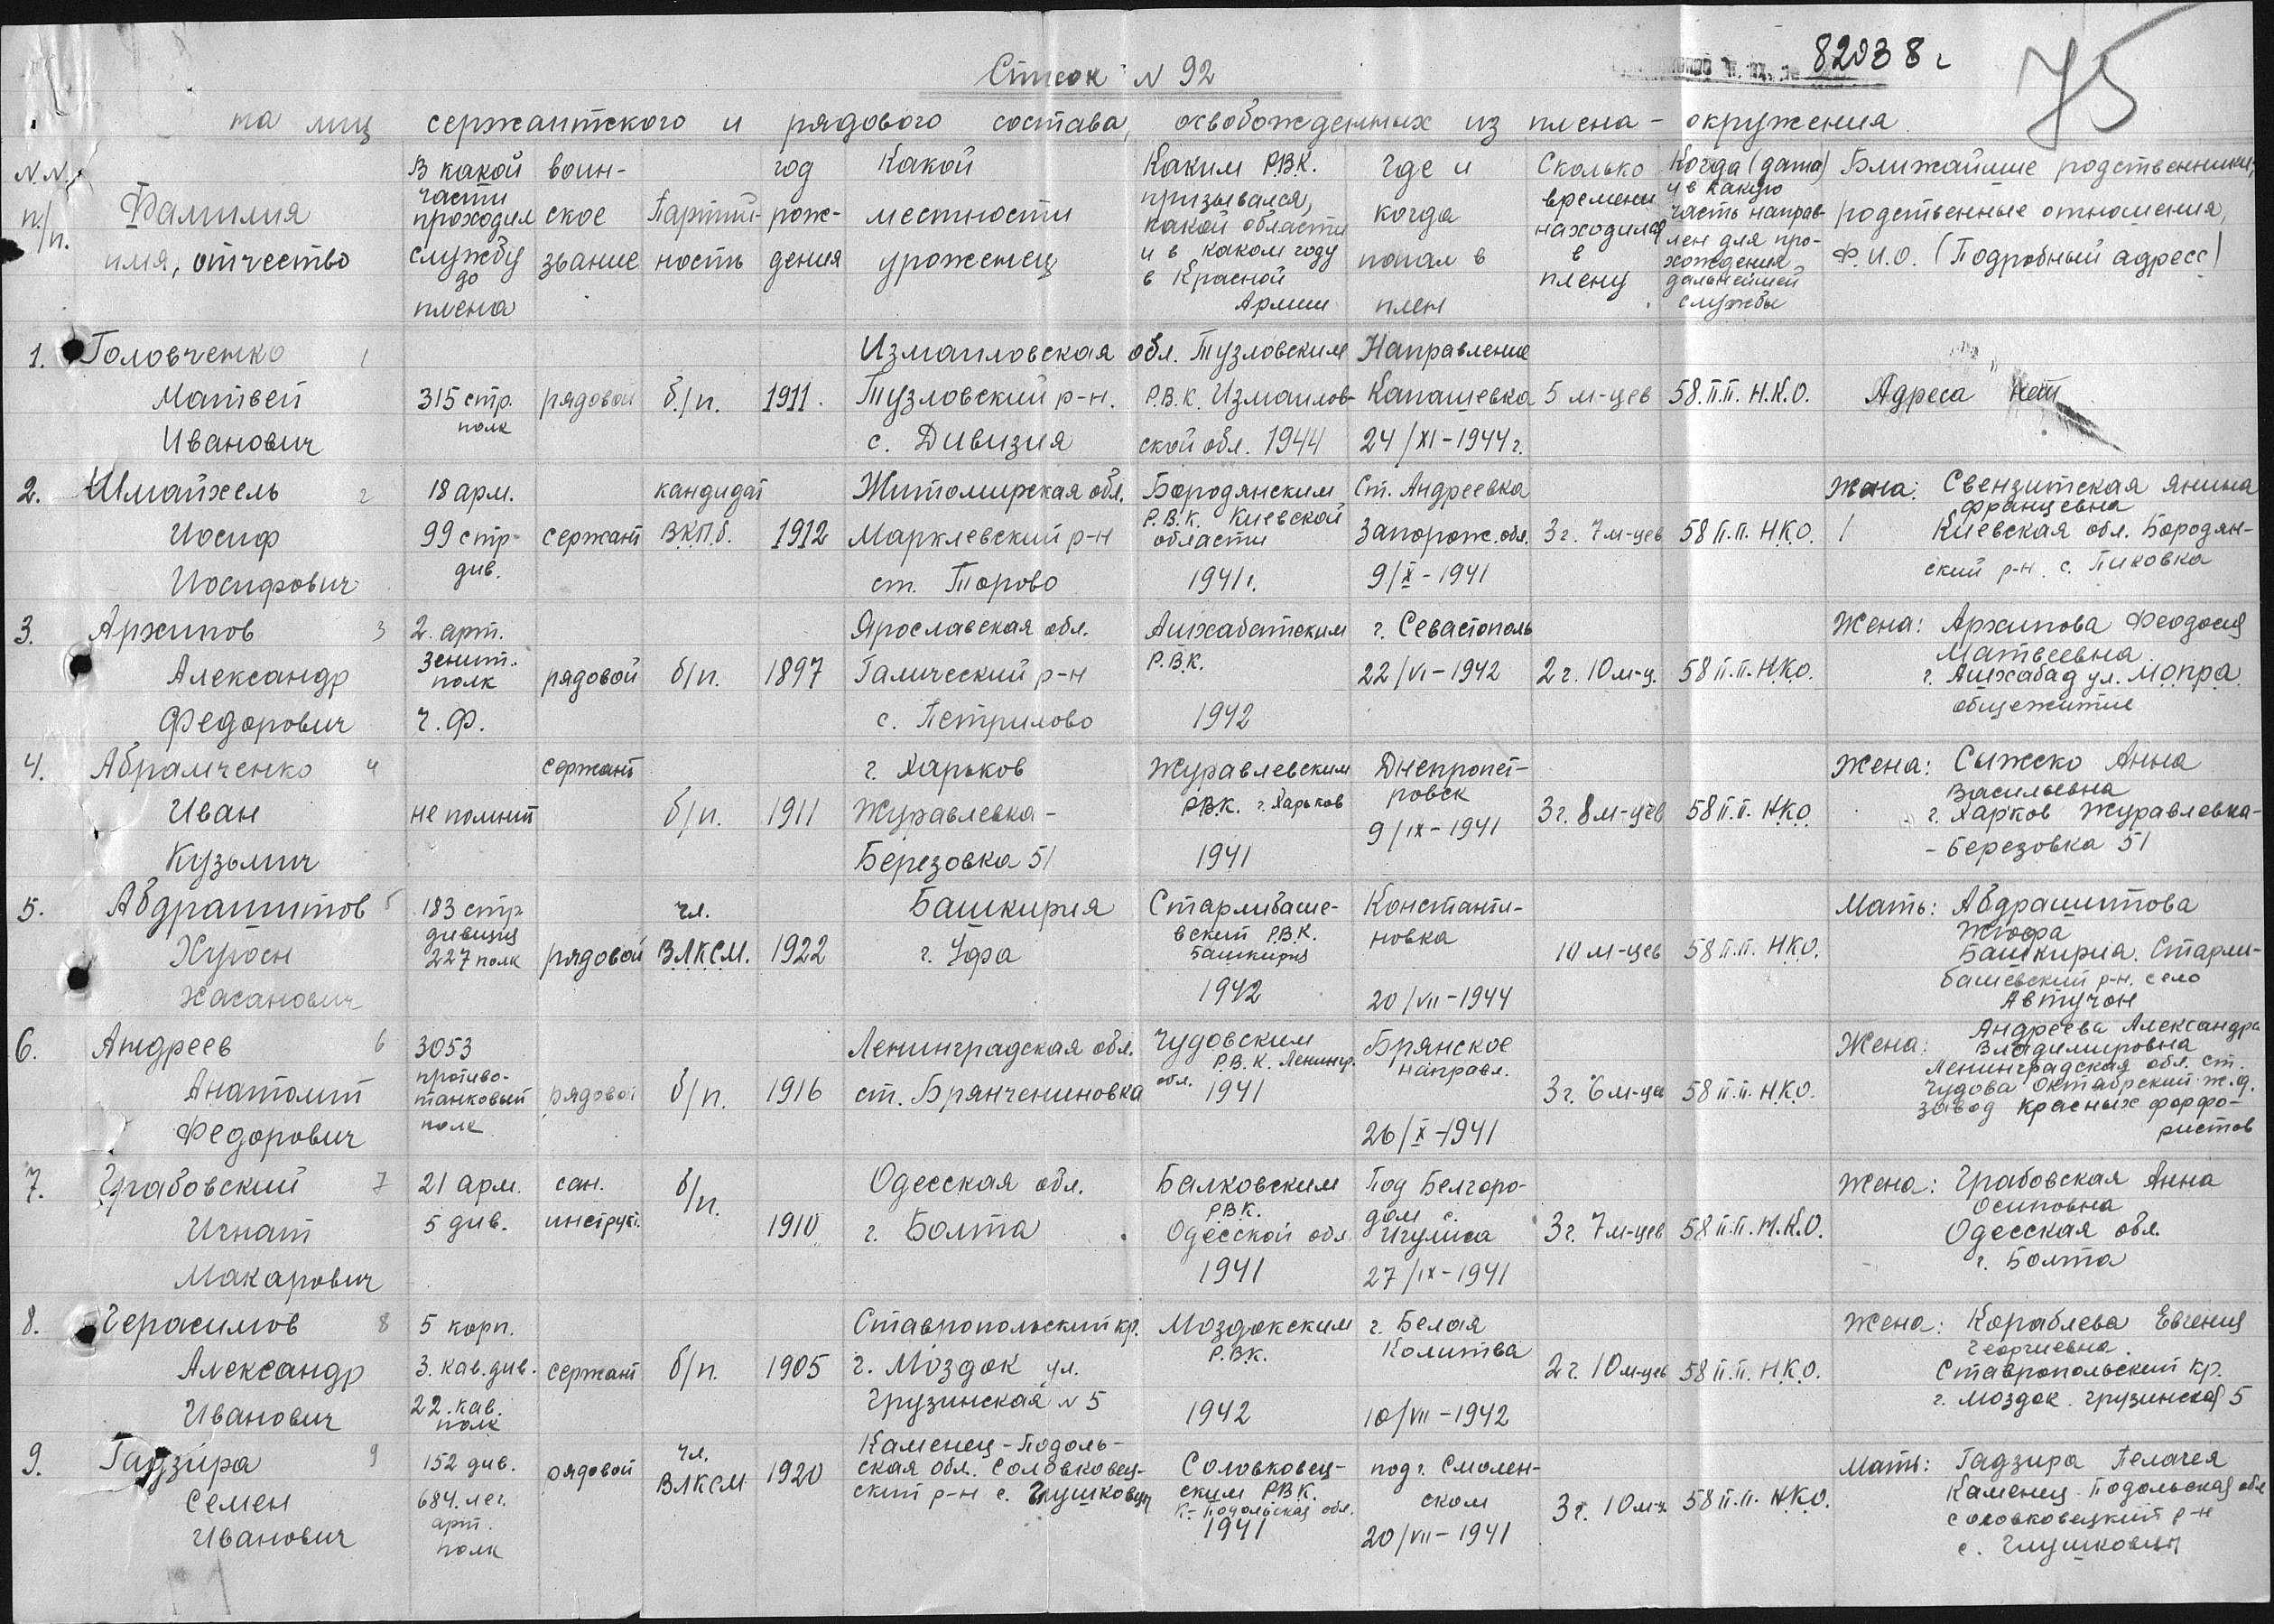 82038 с
75
Список N 92
на лиц сержантского и рядового состава, освобожденных из плена - окружения.
N.N. п/п.
Фамилия имя, отчество
В какой части проходил службу до плена
воинское звание
Партийность
год рождения
Какой местности уроженец
Каким Р.В.К. призывался, какой области и в каком году в Красной Армии
где и когда попал в плен
Сколько времени находился в плену
Когда (дата) и в какую часть направлен для прохождения дальнейшей службы
Ближайшие родственники, родственные отношения, Ф.И.О. (Подробный адресс)
1. Головченко 1 Измаиловская обл. Тузловским Направление
Матвей 315 стр. полк рядовой б/п. 1911. Тузловский р-н. Р.В.К. Измаилов- Капашевка 5 м-цев 58.п.п. Н.К.О. Адреса нет
Иванович с. Дивизия ской обл. 1944 24/XI-1944 г.
2. Шмайхель 2 18 арм. кандидат Житомирская обл. Бородянским Ст. Андреевка Жена: Свензитская Янина Францевна
Иосиф 99 стр. див. сержант В.К.П.б. 1912 Марклевский р-н Р.В.К. Киевской области Запорож. обл. 3 г. 7 м-цев 58 п.п. Н.К.О. Киевская обл. Бородян-
Иосифович ст. Торово 1941 г. 9/X-1941 ский р-н. с. Пиховка
3. Архипов 3 2. арт. Ярославская обл. Ашхабатским г. Севастополь Жена: Архипова Феодосия Матвеевна
Александр зенит. полк рядовой б/п. 1897 Галический р-н Р.В.К. 22/VI-1942 2 г. 10 м-ц. 58 п.п. Н.К.О. г. Ашхабад ул. М.О.П.Р.А.
Федорович Ч.Ф. с. Петрилово 1942 общежитие
4. Абрамченко 4 сержант г. Харьков Журавлевским Днепропет- Жена: Сыжеско Анна
Иван не помнит б/п. 1911 Журавлевка- Р.В.К. г. Харьков ровск 9/IX-1941 3 г. 8 м-цев 58 п.п. Н.К.О Васильевна г. Харков Журавлевка-
Кузьмич Березовка 51 1941 -Березовка 51
5. Абдрашитов 5 183 стр. чл. Башкирия Старлибаше- Константи- Мать: Абдрашитова
дивизия 227 полк рядовой В.Л.К.С.М. 1922 г. Уфа вский Р.В.К. Башкирия новка 10 м-цев 58 п.п. Н.К.О. Башкирия. Старли-
Хасанович 1942 20/VII-1944 башевский р-н. село Автучон
6. Андреев 6 3053 Ленинградская обл. Чудовским Брянское Жена: Андреева Александра Владимировна
Анатолий противо- танковый полк рядовой б/п. 1916 ст. Брянчениновка Р.В.К. Ленингр. обл. 1941 направл. 3 г. 6 м-ца 58 п.п. Н.К.О. Ленинградская обл. ст. Чудова Октябрский ж.д. завод Красных форфо-
Федорович 26/X-1941 ристов
7. Грабовский 7 21 арм. сан. б/п. Одесская обл. Балковским Под Белгоро- Жена: Грабовская Анна
Игнат 5 див. инструк. 1910 г. Болта Р.В.К. Одесской обл. дом с. Игулиса 3 г. 7 м-цев 58 п.п. Н.К.О. Осиповна Одесская обл.
Макарович 1941 27/IX-1941 г. Болта
8. Герасимов 8 5 корп. Ставропольский кр. Моздокским г. Белая Жена: Кораблева Евгения Георгиевна
Александр 3. кав. див. сержант б/п. 1905 г. Моздок ул. Р.В.К. Колитва 2 г. 10 м-цев 58 п.п. Н.К.О. Ставропольский кр.
Иванович 22. кав. полк Грузинская N 5 1942 10/VII-1942 г. Моздок. Грузинская 5
9. Гадзира 9 152 див. рядовой чл. ВЛКСМ 1920 Каменец-Подоль- ская обл. Соловковец- Соловковец- под г. Смолен- Мать: Гадзира Пелагея
Семен 684. лег. ский р-н с. Глушковцы ским Р.В.К. К-Подольская обл. ском 3 г. 10 м-ц 58 п.п. Н.К.О. Каменец-Подольская обл
Иванович арт. полк 1941 20/VII-1941 Соловковецкий р-н с. Глушковцы